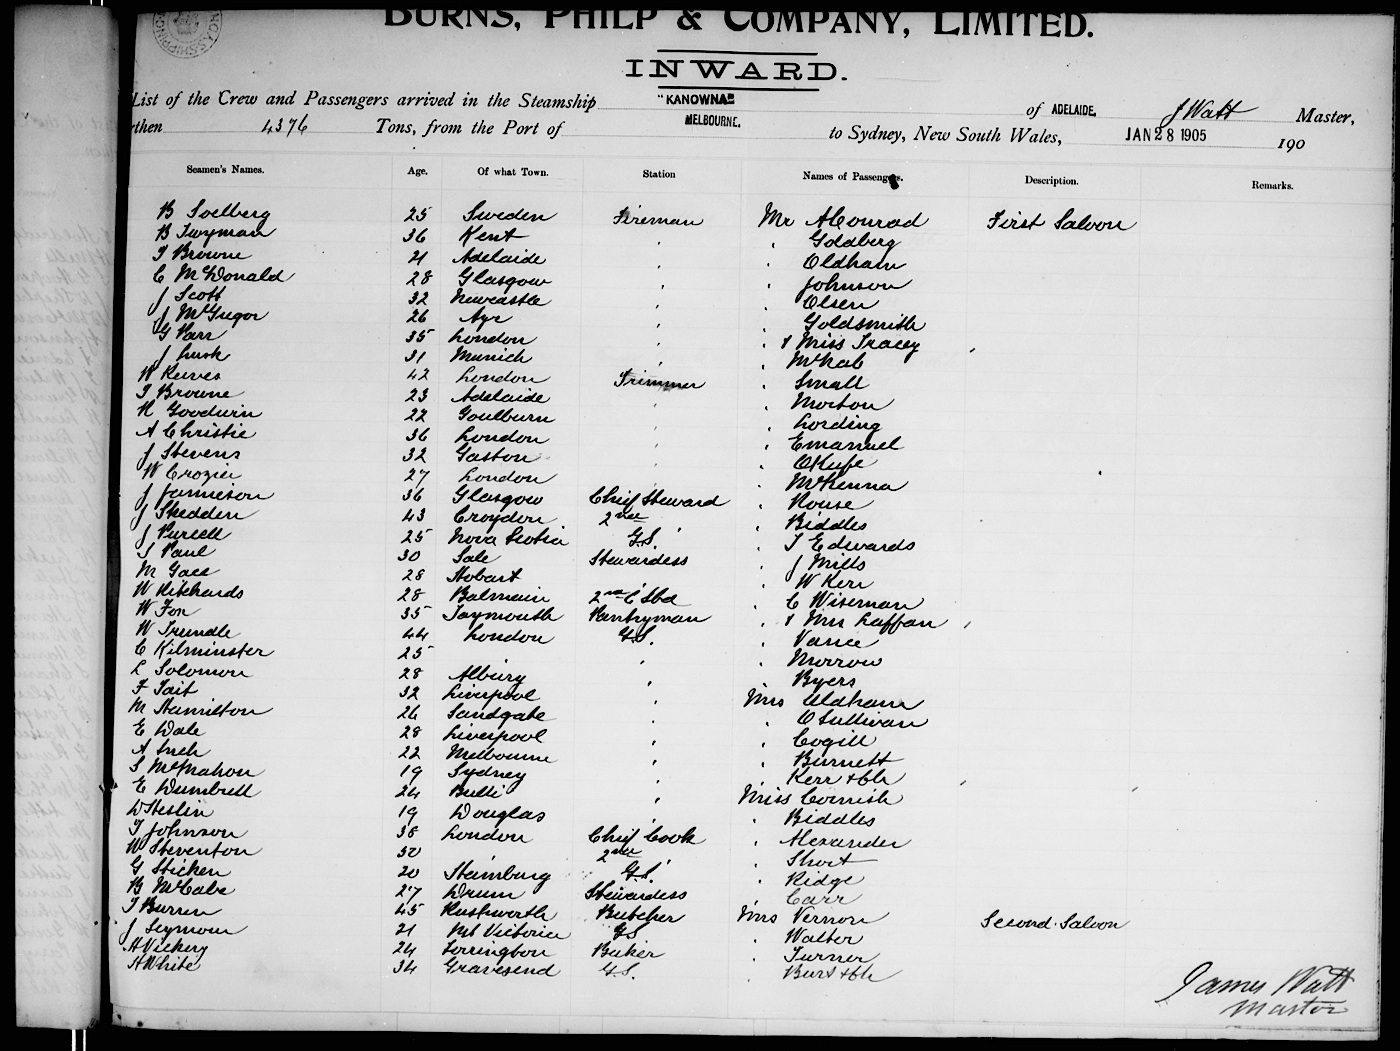 BURNS, PHILP & COMPANY, LIMITED.
INWARD.
List of the Crew and Passengers arrived in the Steamship "KANOWNA" of ADELAIDE. J Watt Master,
rthen 4376 Tons, from the Port of MELBOURNE. to Sydney, New South Wales, JAN 28 1905 190
Seamen's Names. Age. Of what Town. Station Names of Passengers. Description. Remarks.
B Soelberg 25 Sweden Fireman Mr A Conrad First Saloon
B Twyman 36 Kent " Goldberg
T Browne 21 Adelaide " Oldham
C McDonald 28 Glasgow " Johnson
J Scott 32 Newcastle " Olsen
J McGregor 26 Ayr " Goldsmith
G Parr 35 London " & Miss Tracey
J Lusk 31 Munich " McNab
W Reeves 42 London Trimmer Small
T Browne 23 Adelaide " Morton
H Goodwin 22 Goulburn " Lording
A Christie 36 London " Emanuel
J Stevens 32 Gaston " OKeefe
W Crozier 27 London " McKenna
J Jamieson 36 Glasgow Chief Steward Rouse
J Shedden 43 Croydon 2nd Biddles
J Purcell 25 Nova Scotia G.S. T Edwards
S Paul 30 Sale Stewardess J Mills
M Gall 28 Hobart W Kerr
W Ritchards 28 Balmain 2nd C Std C Wiseman
W Fox 35 Taymouth Pantryman & Mrs Laffan
W Trundle 44 London G.S. Vance
C Kilminster 25 " " Morrow
L Solomon 28 Albury " Byers
F Tait 32 Liverpool " Mrs Oldham
M Hamilton 26 Sandgate " O Sullivan
E Dale 28 Liverpool " Cogill
A Inch 22 Melbourne " Burnett
S McMahon 19 Sydney " Kerr & Ch
E Dumbrell 24 Bulli " Miss Cornish
D Heslin 19 Douglas " Biddles
T Johnson 38 London Chief Cook Alexander
W Steventon 30 " 2nd Short
G Sticken 20 Hamburg G.S. Ridge
B McCabe 27 Drum Stewardess Carr
T Burren 45 Rushworth Butcher Mrs Vernon Second Saloon
J Seymour 21 Mt Victoria G.S. Walter
A Vickery 24 Torrington Baker Turner
H White 34 Gravesend G.S. Burt & Ch
James Watt
Master